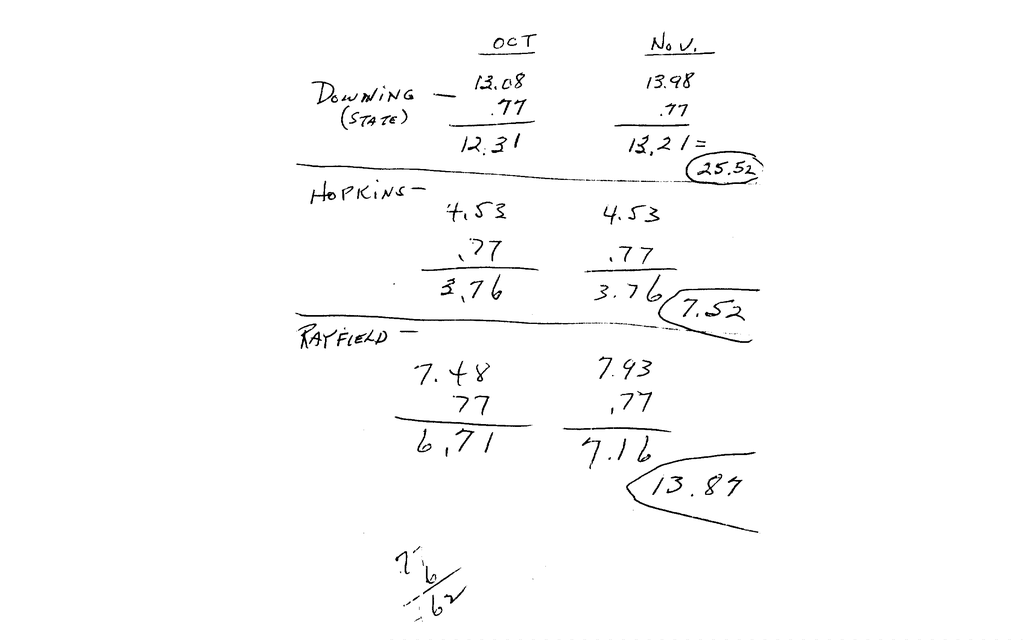 OCT Nov.
DOWNING — 13.08 13.98
(STATE) .77 .77
12.31 13.21 =
25.52
HOPKINS —
4.53 4.53
.77 .77
3.76 3.76
7.52
RAYFIELD —
7.48 7.93
77 .77
6.71 7.16
13.87